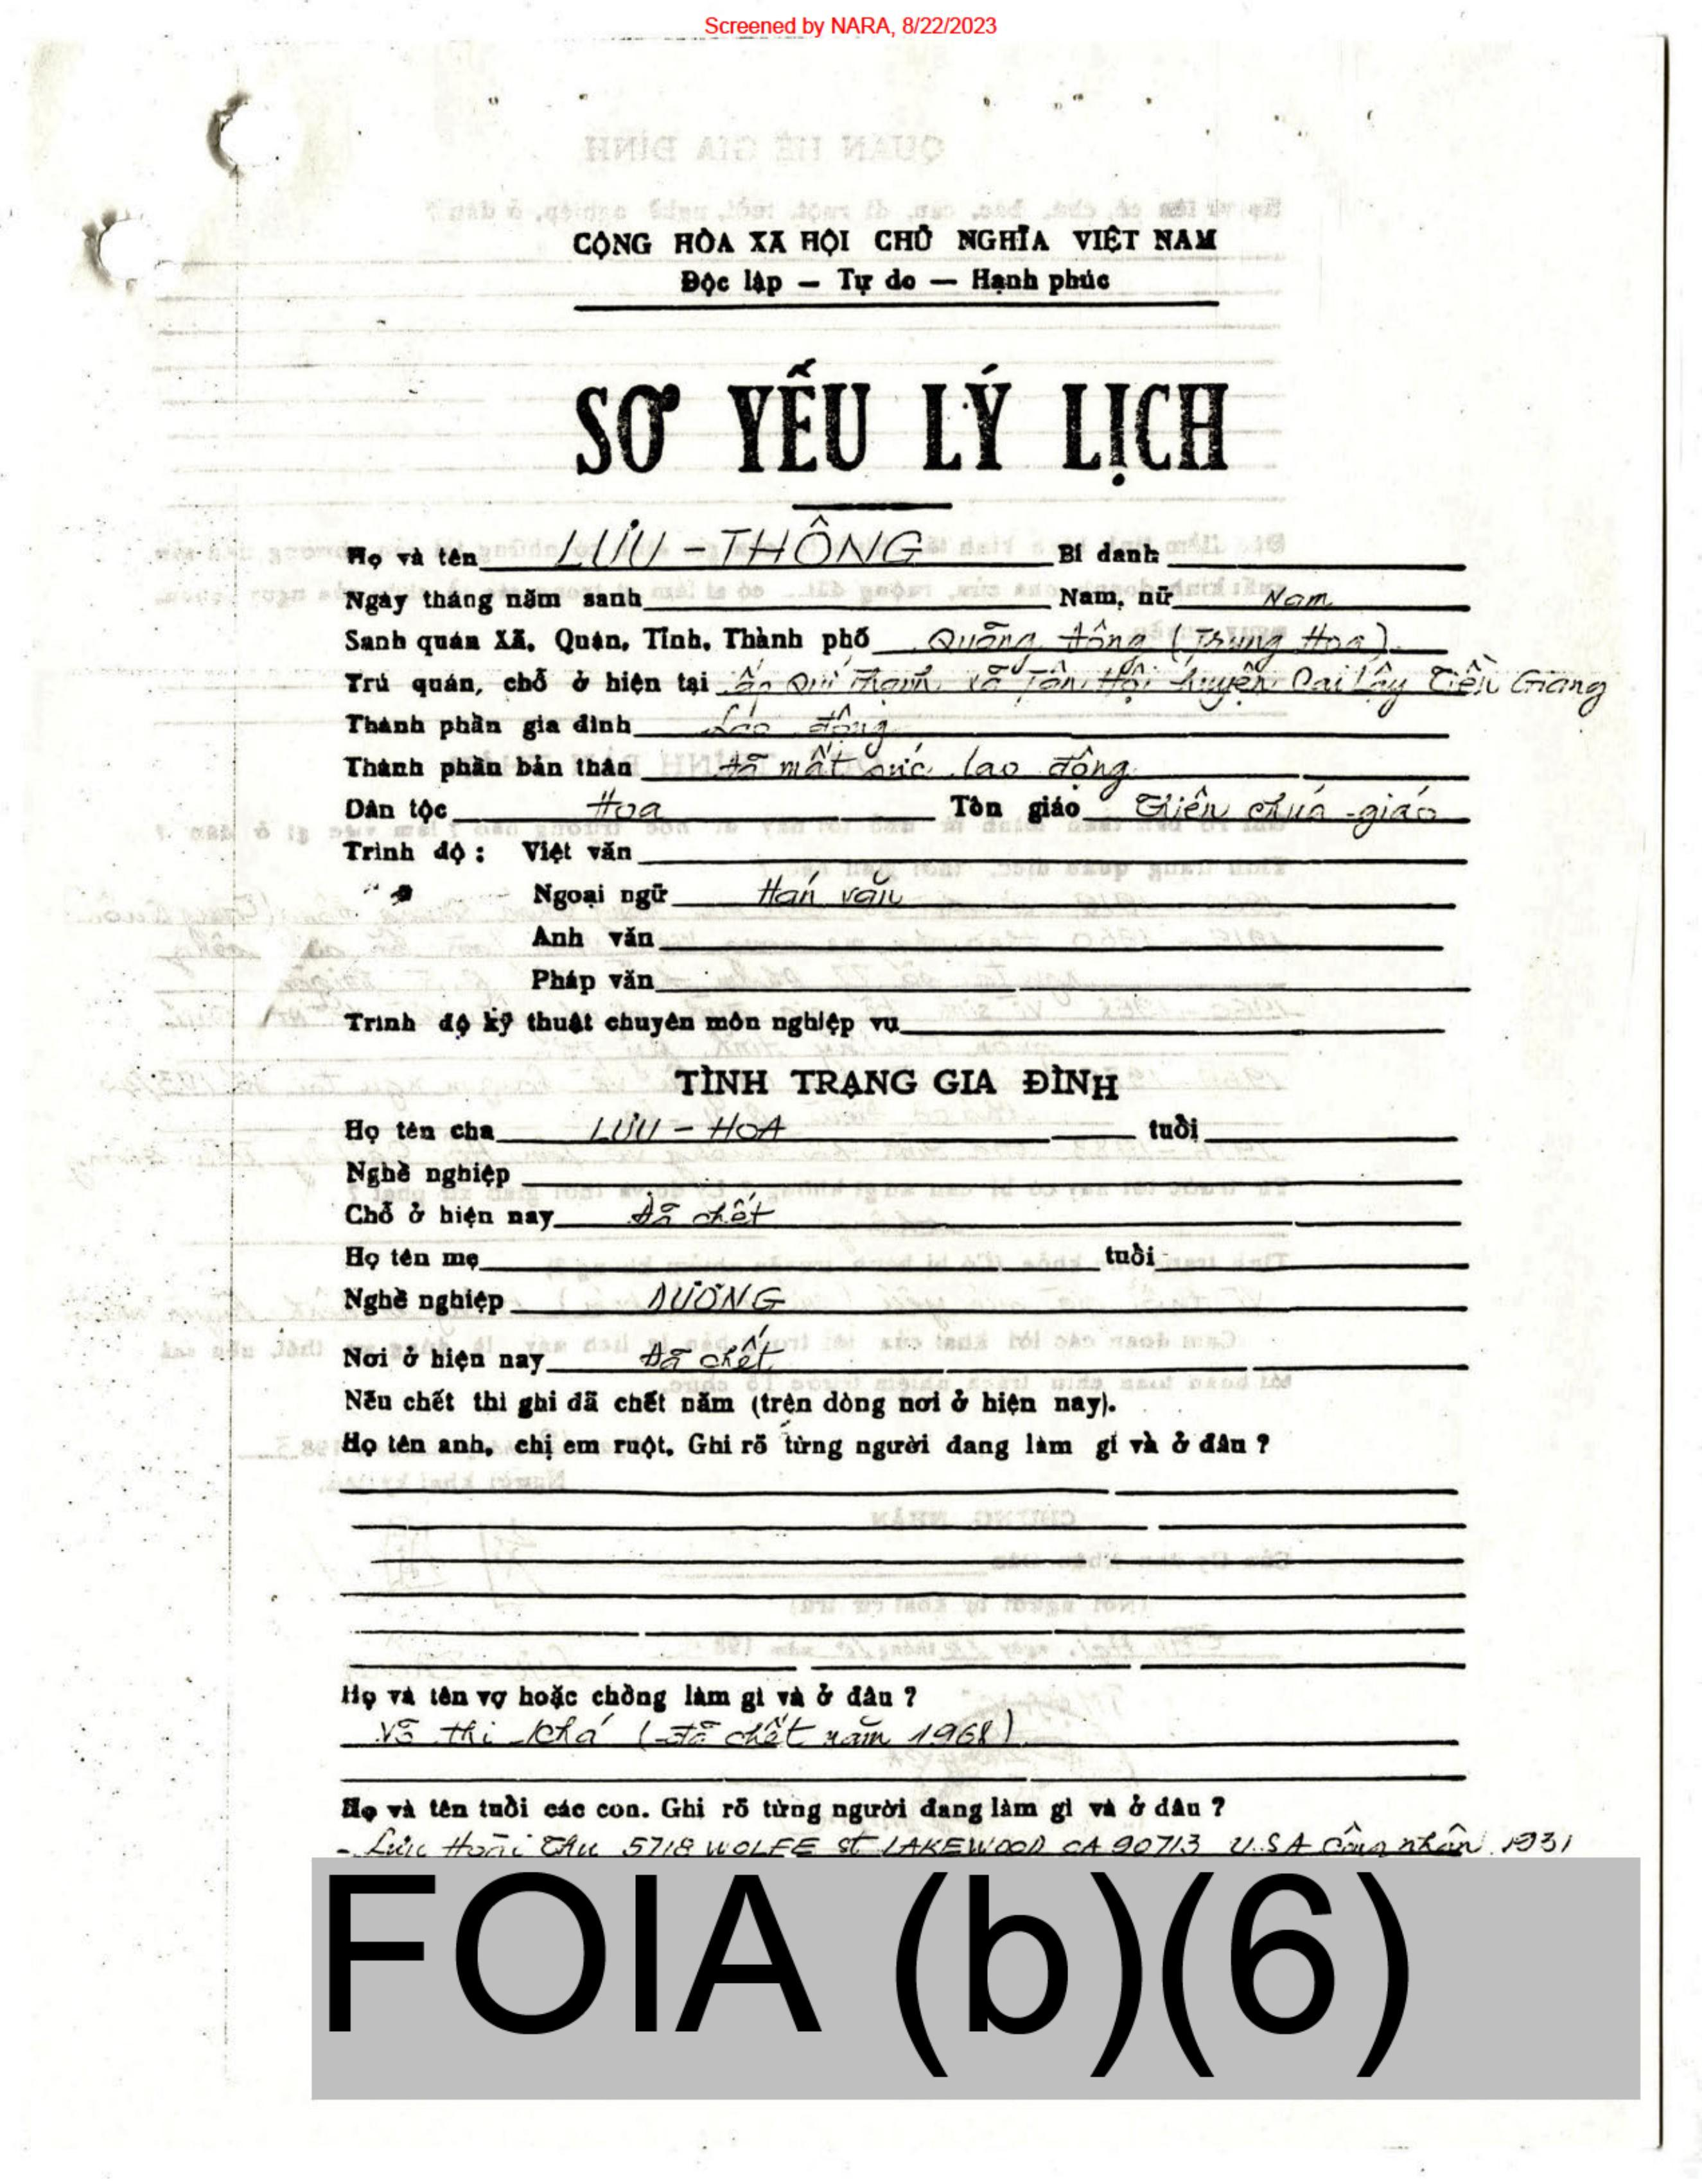 Screened by NARA, 8/22/2023
CỘNG HÒA XÃ HỘI CHỦ NGHĨA VIỆT NAM
Độc lập — Tự do — Hạnh phúc
SƠ YẾU LÝ LỊCH
Họ và tên LƯU - THÔNG Bí danh
Ngày tháng năm sanh Nam, nữ Nam
Sanh quán Xã, Quân, Tỉnh, Thành phố Quãng Đông (Trung Hoa)
Trú quán, chỗ ở hiện tại ấp Quí Thạnh xã Tân Hội huyện Cai Lậy Tiền Giang
Thành phần gia đình Lao động
Thành phần bản thân Đã mất sức lao động
Dân tộc Hoa Tôn giáo Thiên chúa - giáo
Trình độ : Việt văn
Ngoại ngữ Hán văn
Anh văn
Pháp văn
Trình độ kỹ thuật chuyên môn nghiệp vụ
TÌNH TRẠNG GIA ĐÌNH
Họ tên cha LƯU - HOA tuổi
Nghề nghiệp
Chỗ ở hiện nay Đã chết
Họ tên mẹ tuổi
Nghề nghiệp DƯƠNG
Nơi ở hiện nay Đã chết
Nếu chết thì ghi đã chết năm (trên dòng nơi ở hiện nay).
Họ tên anh, chị em ruột. Ghi rõ từng người đang làm gì và ở đâu ?
Họ và tên vợ hoặc chồng làm gì và ở đâu ?
Võ thi Khá (đã chết năm 1968)
Họ và tên tuổi các con. Ghi rõ từng người đang làm gì và ở đâu ?
- Lưu Hoài Thu 5718 WOLFE St LAKEWOOD CA 90713 U.S.A Công nhân 1931
FOIA (b)(6)